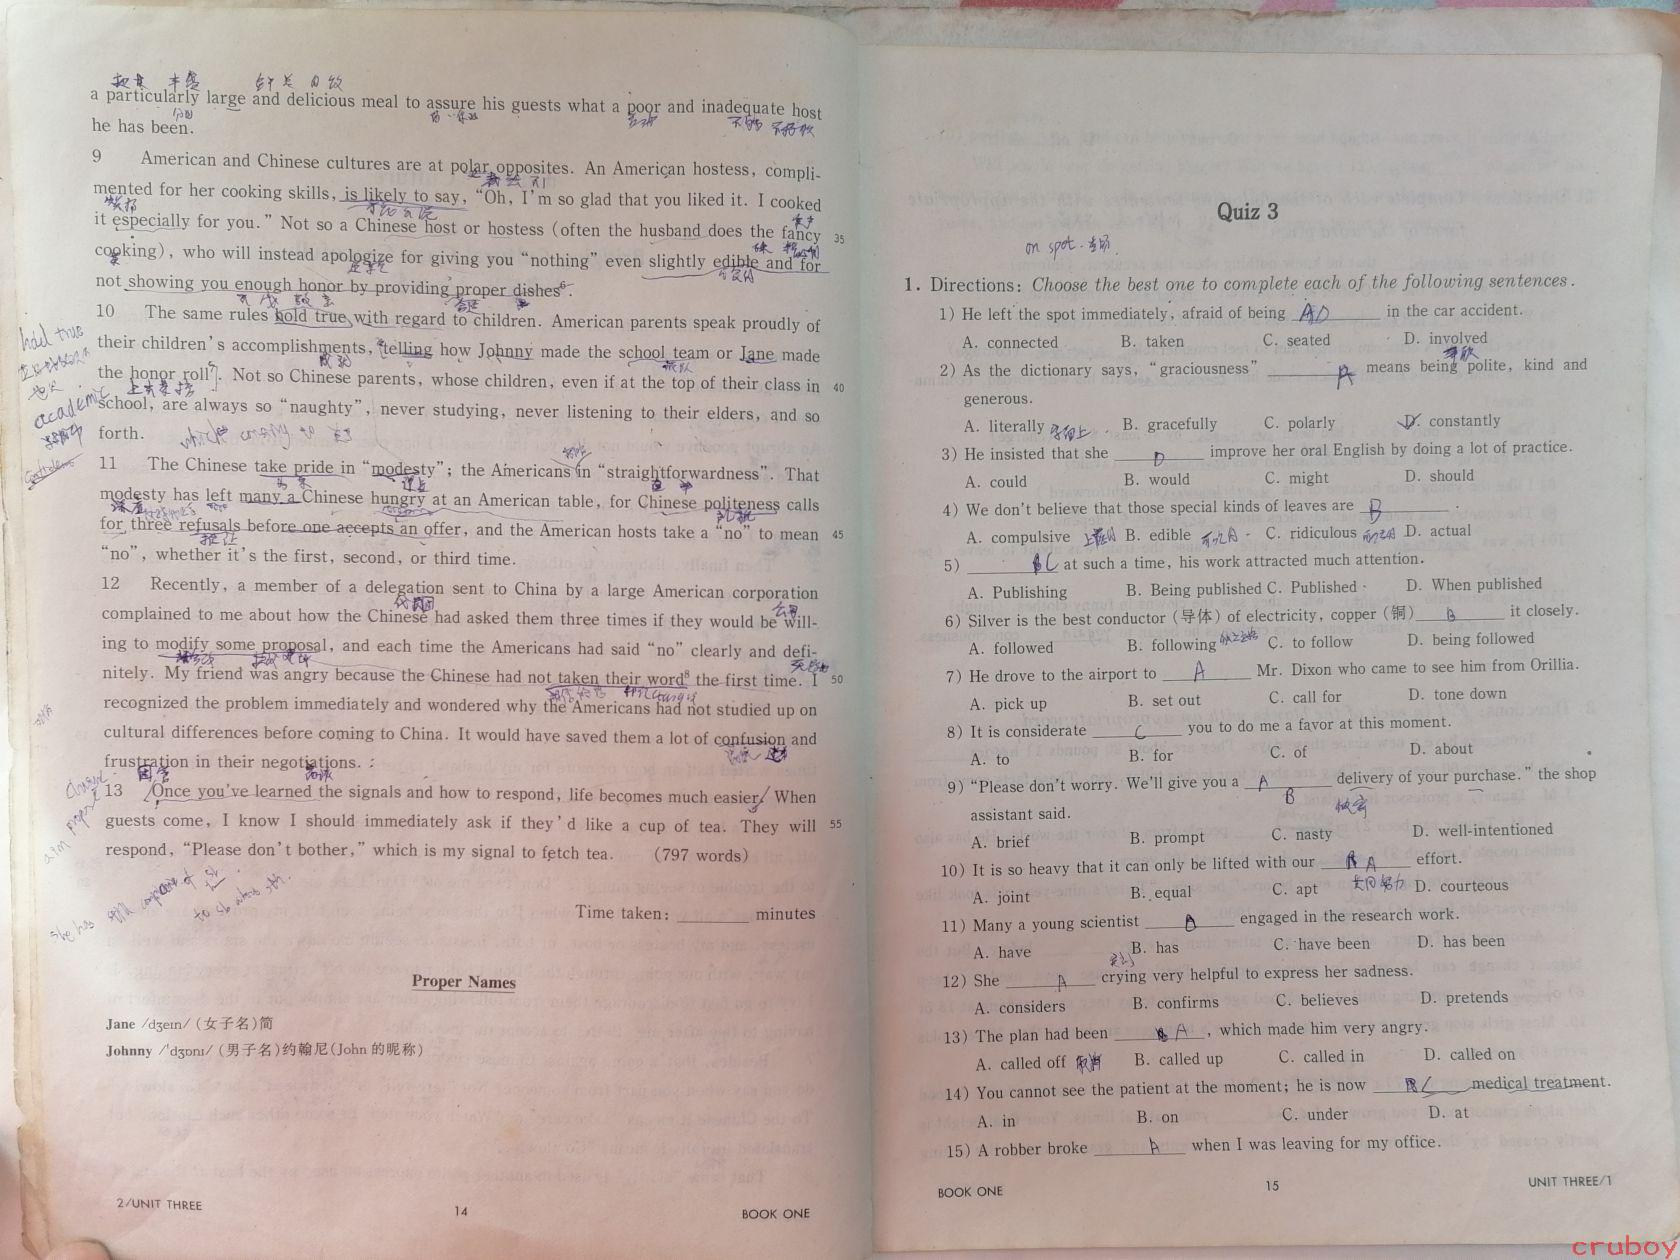 a particularly large and delicious meal to assure his guests what a poor and inadequate host
he has been.
9 American and Chinese cultures are at polar opposites. An American hostess, compli-
mented for her cooking skills, is likely to say, “Oh, I’m so glad that you liked it. I cooked
it especially for you.” Not so a Chinese host or hostess (often the husband does the fancy 35
cooking), who will instead apologize for giving you “nothing” even slightly edible and for
not showing you enough honor by providing proper dishes⁶.
10 The same rules hold true with regard to children. American parents speak proudly of
their children’s accomplishments, telling how Johnny made the school team or Jane made
the honor roll⁷. Not so Chinese parents, whose children, even if at the top of their class in 40
school, are always so “naughty”, never studying, never listening to their elders, and so
forth.
11 The Chinese take pride in “modesty”; the Americans in “straightforwardness”. That
modesty has left many a Chinese hungry at an American table, for Chinese politeness calls
for three refusals before one accepts an offer, and the American hosts take a “no” to mean 45
“no”, whether it’s the first, second, or third time.
12 Recently, a member of a delegation sent to China by a large American corporation
complained to me about how the Chinese had asked them three times if they would be will-
ing to modify some proposal, and each time the Americans had said “no” clearly and defi-
nitely. My friend was angry because the Chinese had not taken their word⁸ the first time. I 50
recognized the problem immediately and wondered why the Americans had not studied up on
cultural differences before coming to China. It would have saved them a lot of confusion and
frustration in their negotiations.
13 Once you’ve learned the signals and how to respond, life becomes much easier. When
guests come, I know I should immediately ask if they’d like a cup of tea. They will 55
respond, “Please don’t bother,” which is my signal to fetch tea. (797 words)
Time taken: ________ minutes
Proper Names
Jane /dʒeɪn/ (女子名)简
Johnny /ˈdʒɒnɪ/ (男子名)约翰尼(John 的昵称)
2/UNIT THREE
14
BOOK ONE
hold true
academic
Quiz 3
on spot.
1. Directions: Choose the best one to complete each of the following sentences.
1) He left the spot immediately, afraid of being AD in the car accident.
A. connected B. taken C. seated D. involved
2) As the dictionary says, “graciousness” A means being polite, kind and
generous.
A. literally 字面上 B. gracefully C. polarly D. constantly
3) He insisted that she D improve her oral English by doing a lot of practice.
A. could B. would C. might D. should
4) We don’t believe that those special kinds of leaves are B .
A. compulsive B. edible C. ridiculous D. actual
5) BC at such a time, his work attracted much attention.
A. Publishing B. Being published C. Published D. When published
6) Silver is the best conductor (导体) of electricity, copper (铜) B it closely.
A. followed B. following C. to follow D. being followed
7) He drove to the airport to A Mr. Dixon who came to see him from Orillia.
A. pick up B. set out C. call for D. tone down
8) It is considerate C you to do me a favor at this moment.
A. to B. for C. of D. about
9) “Please don’t worry. We’ll give you a A B delivery of your purchase.” the shop
assistant said.
A. brief B. prompt C. nasty D. well-intentioned
10) It is so heavy that it can only be lifted with our A effort.
A. joint B. equal C. apt 共同努力 D. courteous
11) Many a young scientist B engaged in the research work.
A. have B. has C. have been D. has been
12) She A crying very helpful to express her sadness.
A. considers B. confirms C. believes D. pretends
13) The plan had been A , which made him very angry.
A. called off 取消 B. called up C. called in D. called on
14) You cannot see the patient at the moment; he is now BC medical treatment.
A. in B. on C. under D. at
15) A robber broke A when I was leaving for my office.
BOOK ONE
15
UNIT THREE/1
cruboy